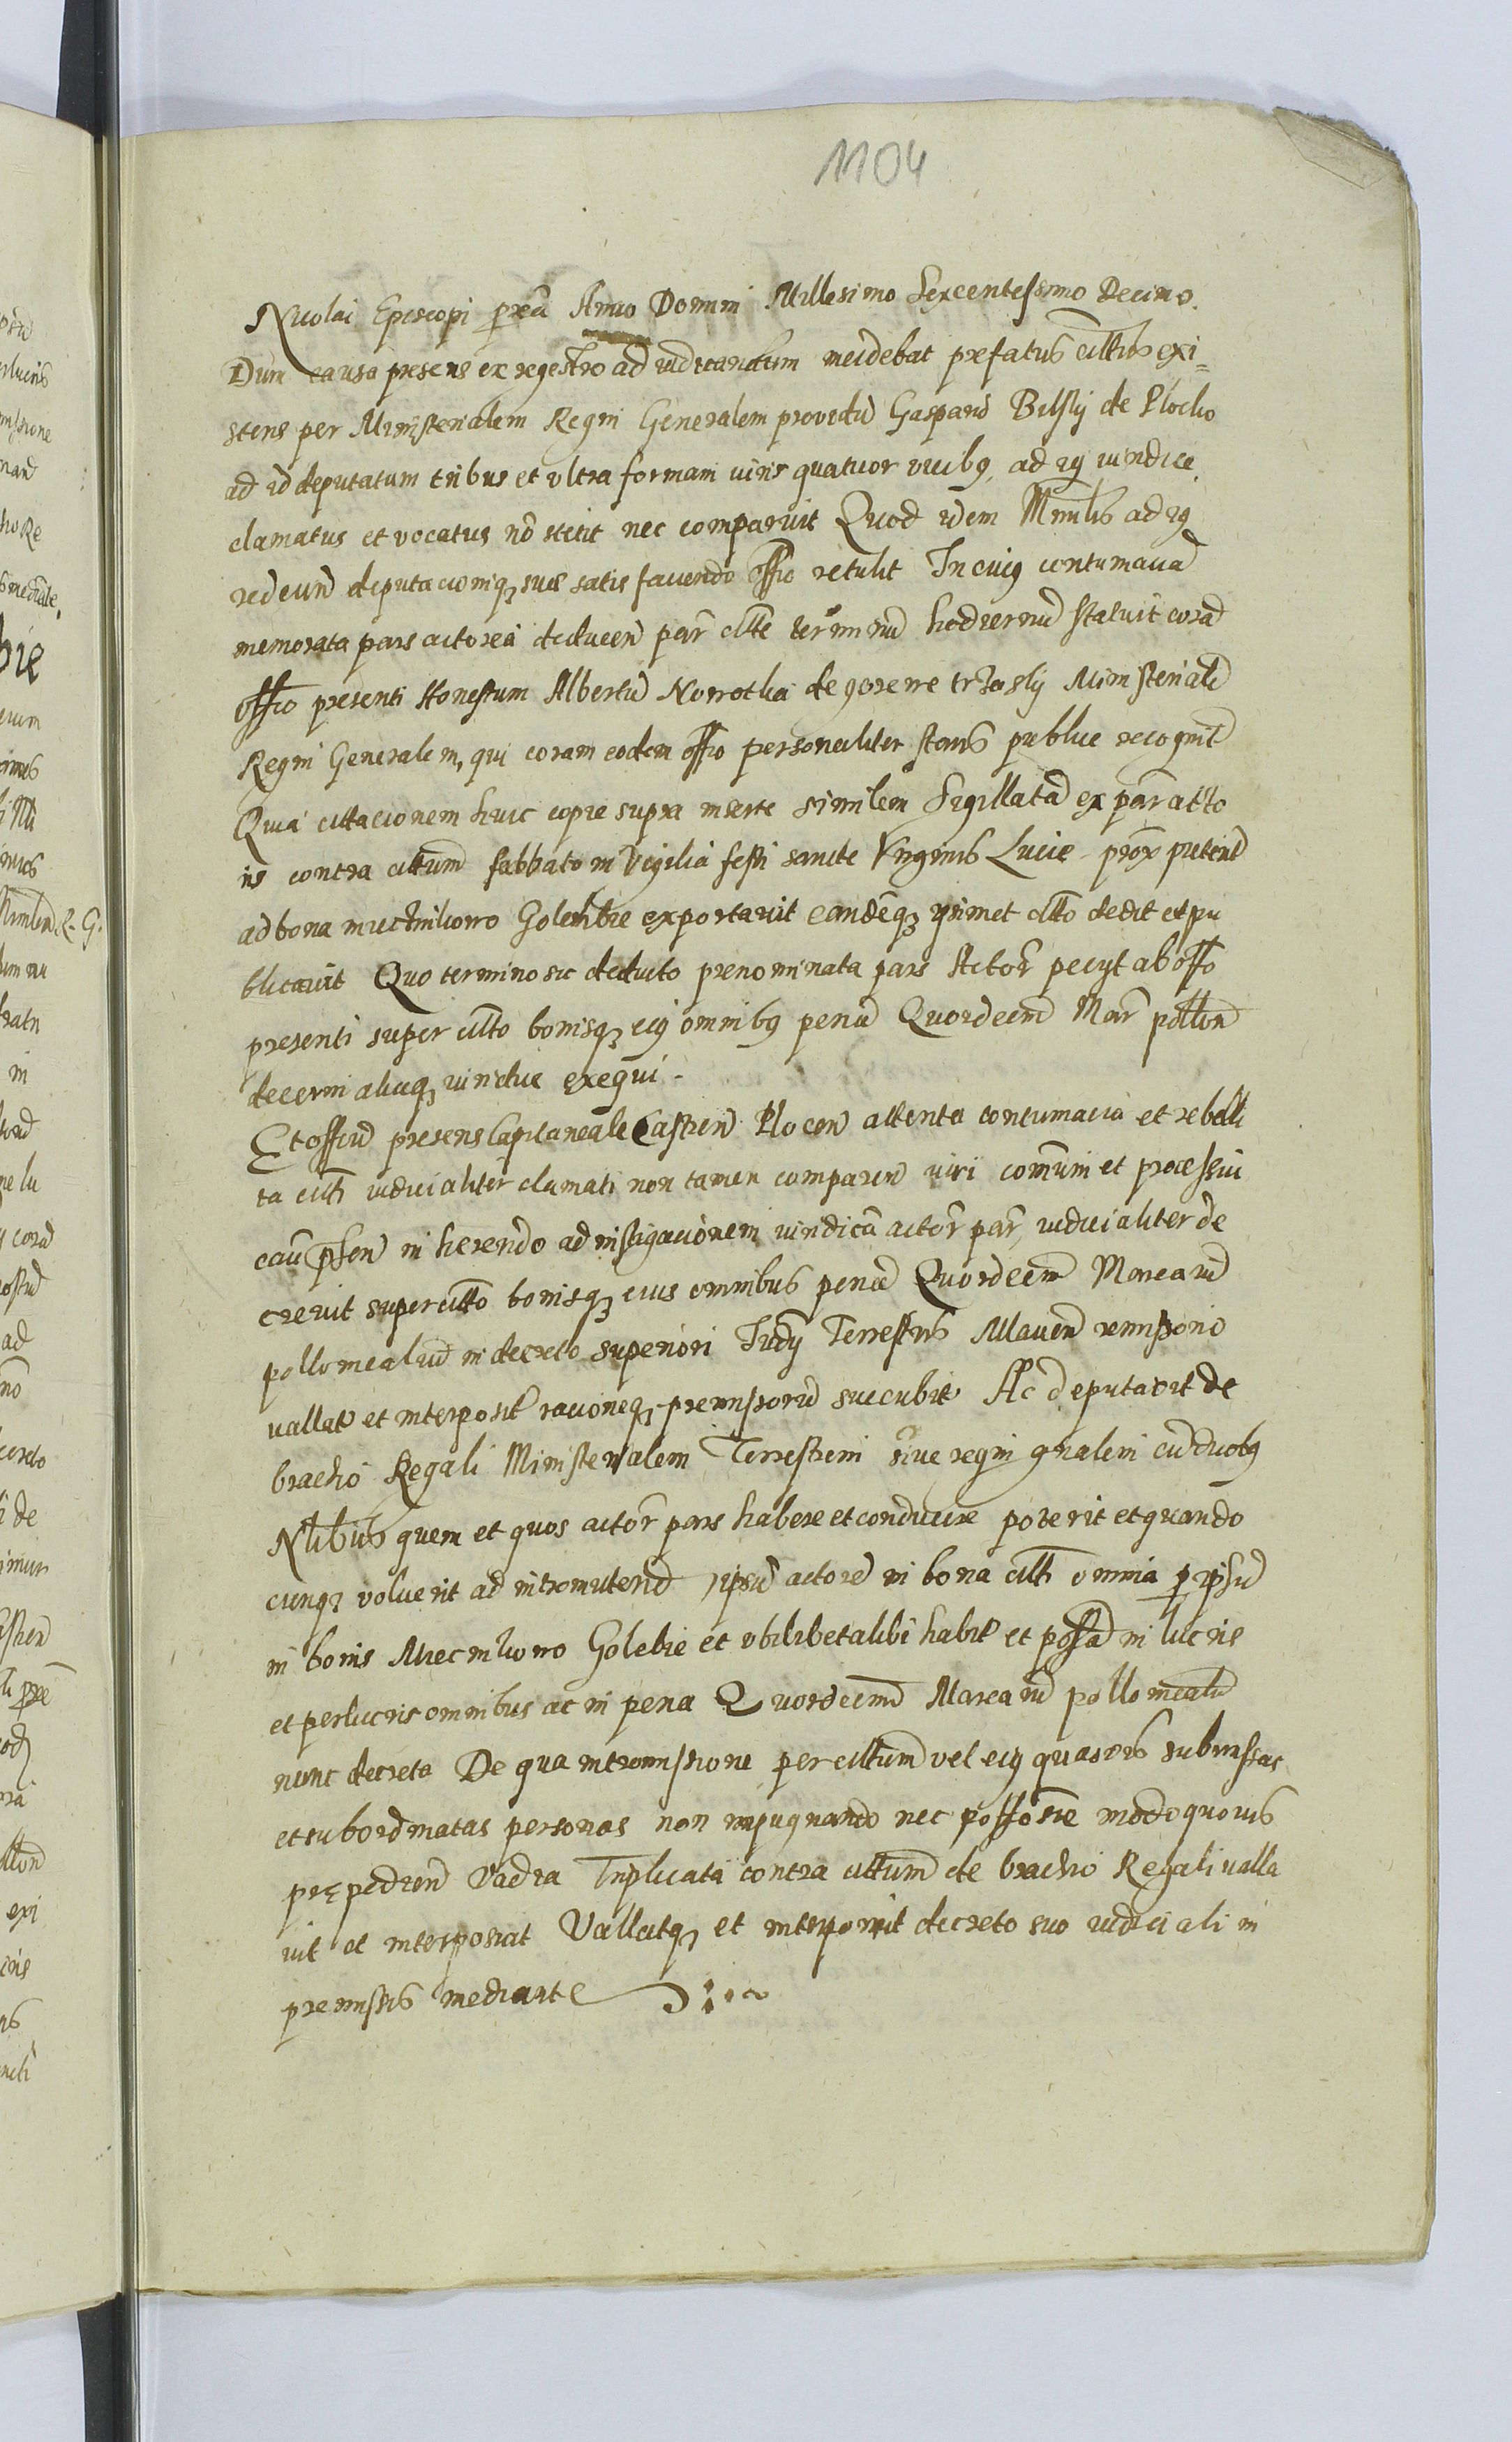 1104
Nicolai Episcopi pxã Anno Domini Millesimo Sexcentessimo Decimo.
Dum causa presens ex regestro ad iudicandum incidebat prefatus cittus exi=
stens per Ministerialem Regni Generalem providũ Gasparũ Bilsky de Plocko
ad id deputatum tribus et vltra formam iuris quatuor vicibq ad iq iuridice
clamatus et vocatus nõ stetit nec comparuit Quod idem Mnrlis ad iq
redeund deputacioniq sue satis faciendo offio retulit In cuiq contumaciã
memorata pars actorea deducen par citte terminũ hodiernũ statuit corã
offio presenti Honestum Albertũ Norrotka de gorene trzasky Ministerialẽ
Regni Generalem, qui coram eodem offio personaliter stans publice recognit
Quia cittacionem huic copie supra inserte similem Sigillatã ex par acto
ris contra cittum sabbato in Vigilia festi sancte Virginis Lucie prox preterit
ad bona miecznikowo Golembie exportavit eandẽq ipsimet citto dedit et pu
blicavit Quo termino sic deducto prenominata pars Actor peciyt ab offo
presenti super citto bonisq eiq omnibq penã Quordecem Mar pollon
decerni aliaq iuridice exequi.
Et offiũ presens Capitaneale Castren Plocen attenta contumacia et rebelli
ta citti iudicialiter clamati non tamen comparen iuri comuni et processui
cau psen in herendo ad instigacionem iuridicã actor par, iudicialiter de
crevit super citto bonisq eius omnibus penã Quordecem Marcarũ
pollonicaliũ in decreto superiori Iudy Terrestris Mlauen remissorio
vallat et interposit racioneq premissorũ succubit Ac deputavit de
brachio Regali Ministerialem Terrestrem siue regni gnalem cũ duobq
Nlibus quem et quos actor pars habere et conducere poterit et quando
cunq voluerit ad intromittend ipsũ actorẽ in bona citti omnia p ipsũ
in bonis Miecznikowo Golebie et vbilibet alibi habit et possã in lucris
et perlucris omnibus ac in pena Quordecem Marcarũ pollonicaliũ
nunc decreta De qua intromissione per cittum vel eiq quasvis submissas
et subordinatas personas non impugnando nec possossie modo quovis
prępediend Vadia Triplicata contra cittum de brachio Regali valla
uit et interposiat Vallatq et interponit decreto suo iudiciali in
premissis mediante